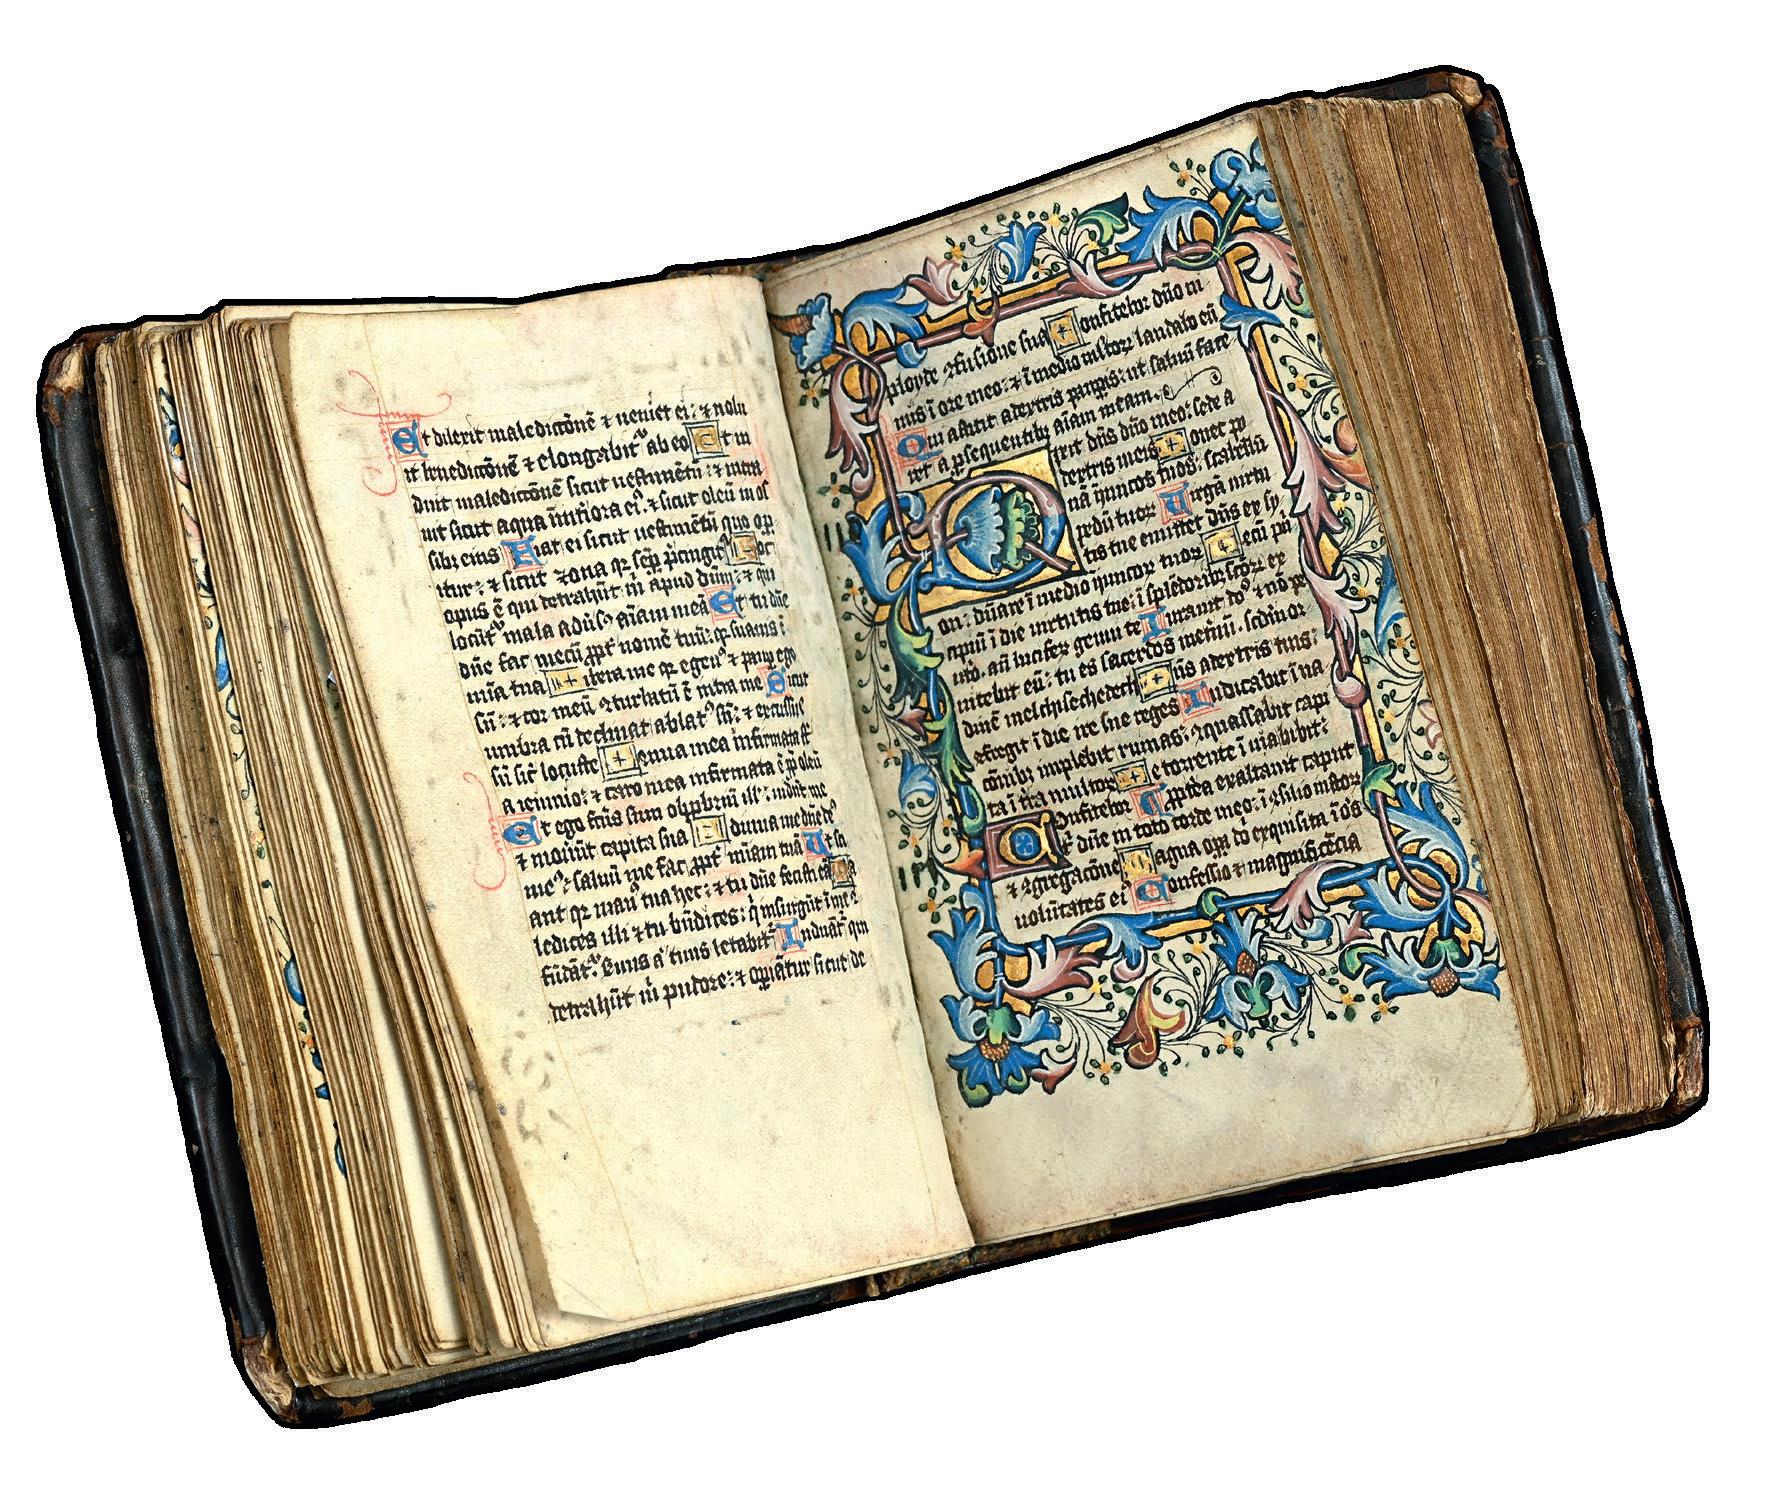 Et dilexit maledictōnē ⁊ ueniet ei: ⁊ nolu
it benedictōnē ⁊ elongabit᷑ ab eo Et in
duit maledictōnē sicut uestimētū: ⁊ intra
uit sicut aqua ī interiora eiꝰ ⁊ sicut oleū in os
sibꝫ eius Fiat ei sicut uestimētū quo oꝑ
itur: ⁊ sicut zona qꝛ sēꝑ p̄cingit᷑ Hoc
opus ē qui detrahūt m̄ apud dūm: ⁊ qui
locūt᷑ mala adūsꝰ aīam meā Et tu dūe
dūe fac mecū ꝓpt᷑ nomē tuū: qꝛ suauis ē
mīa tua Libera me qꝛ egenꝰ ⁊ paup ego
sū: ⁊ cor meū ꝯturbatū ē intra me Sicut
umbra cū declinat ablatꝰ sū: ⁊ excussus
sū sic̄ locuste Genua mea infirmata sт̄
a ieiunio: ⁊ caro mea infirmata ē ꝓp̄ oleū
Et ego fc̄us sum obprbriū ill᷑: uidūt me
⁊ mouūt capita sua Adiuua me dn̄e deꝰ
meꝰ: saluū me fac ꝓpt᷑ mīam tuā Et sci
ant qꝛ manꝰ tua hec: ⁊ tu dūe fecisti eā
ledices illi ⁊ tu bn̄dices: q̄ insurgūt ī me
fūdāt᷑: seruꝰ aūt tuus letabit᷑ Induāt᷑ qui
detrahūt m̄ pudore: ⁊ oꝑiātur sicut de
ployde ꝯfusione sua Confitebor dn̄o ni
mis ī ore meo: ⁊ ī medio multoꝝ laudabo eū
Qui astitit adextris pauꝑis: ut saluā facē
ret a ꝑsequentibꝫ aīam meam.
Dixit dn̄s dn̄o meo: sede a
dextris meis Donec po
nā inīmicos tuos: scabellū
pedū tuoꝝ Virgā uirtu
tis tue emittet dn̄s ex sy
on: dn̄are ī medio inīmicoꝝ tuoꝝ Tecū pn̄
cipiū ī die uirtutis tue: ī splēdoribꝫ scōꝝ ex
utō. an̄ lucifeꝝ genui te Iurauit dn̄s ⁊ nō pe
nitebit eū: tu es sacerdos ineternū. scdm̄ or
dinē melchisedech Dn̄s adextris tuis:
ꝯfregit ī die ire sue reges Iudicabit ī na
cōnibꝫ implebit ruinas: ꝯquassabit capi
ta ī t̄ra multoꝝ De torrente ī uia bibit:
Confitebor Propt̄ea exaltauit caput
t᷑ dn̄e in toto corde meo: ī ꝯsilio iustoꝝ
⁊ ꝯgregacōne Magna oꝑa dn̄i exquisita ī ōs
uolūtates eiꝰ Confessio ⁊ magnificēcia